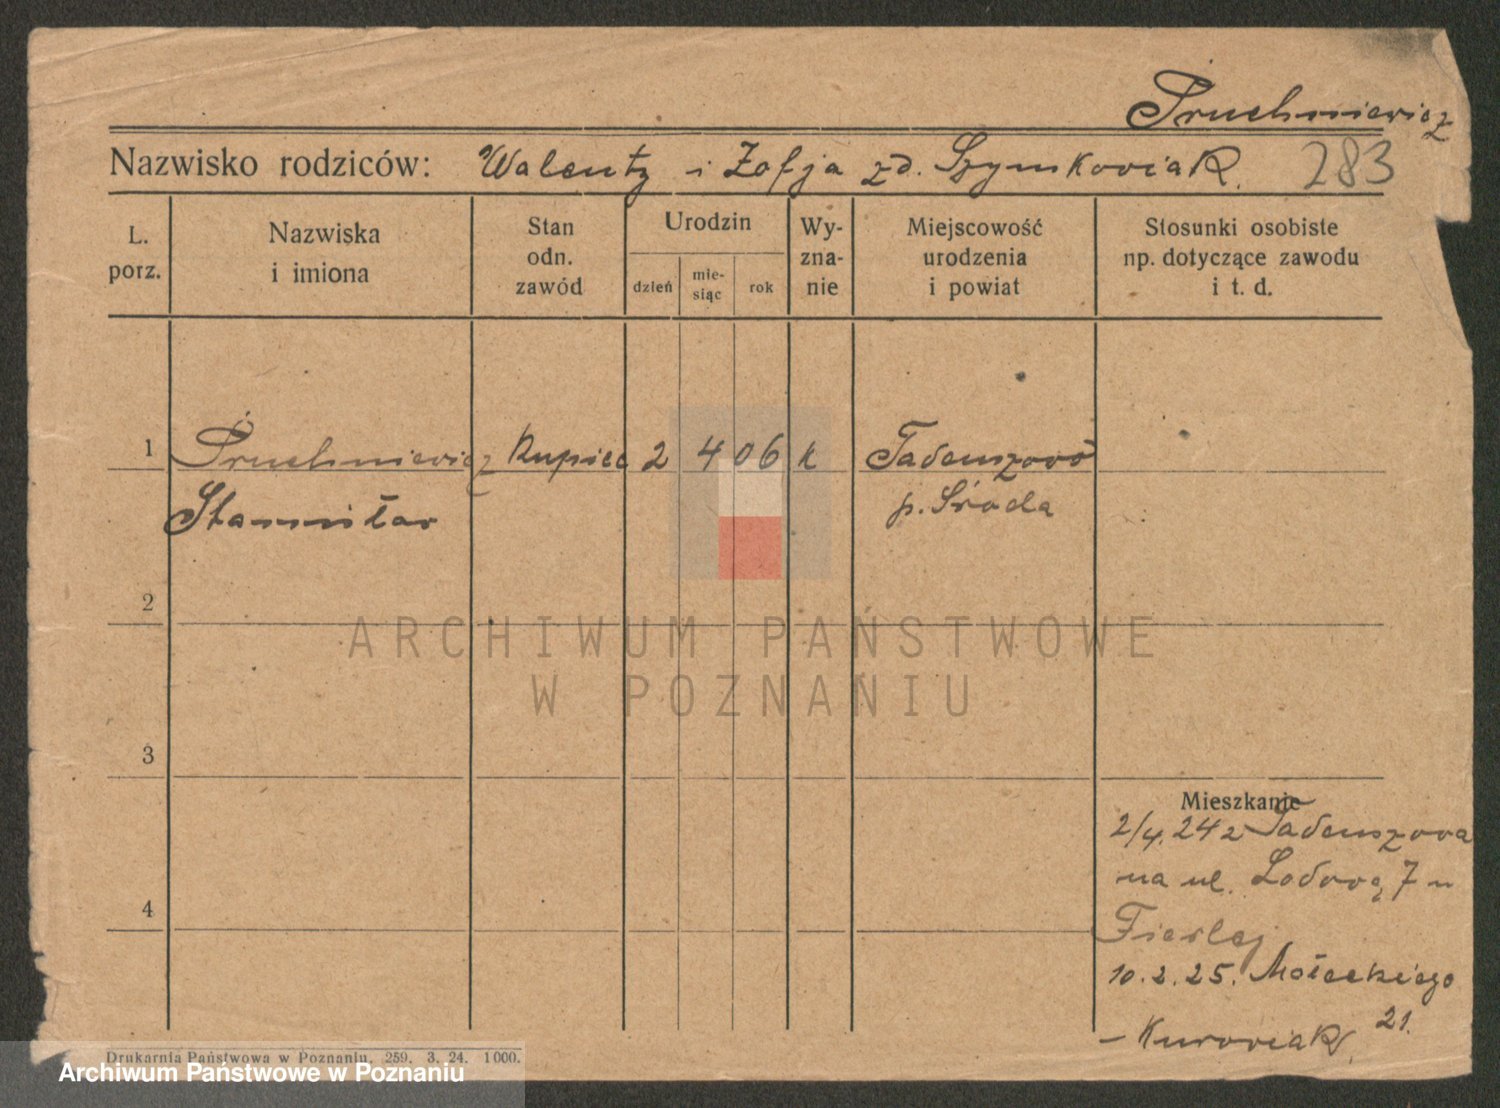 Pruchniewicz
Nazwisko rodziców: Walenty i Zofja zd. Szymkowiak. 283
L. porz.
Nazwiska i imiona
Stan odn. zawód
Urodzin
dzień
mie-
siąc
rok
Wy-
zna-
nie
Miejscowość
urodzenia
i powiat
Stosunki osobiste
np. dotyczące zawodu
i t. d.
1 Pruchniewicz Kupiec 2 4 06 k Tadeuszowo
Stanisław p. Środa
2
ARCHIWUM PAŃSTWOWE
W POZNANIU
3
Mieszkanie
2/4. 24 z Tadeuszowa
na ul. Lodową 7 u
4
10.2.25. Małeckiego
21.
- Kurowiak
Drukarnia Państwowa w Poznaniu. 259. 3. 24. 1000.
Archiwum Państwowe w Poznaniu